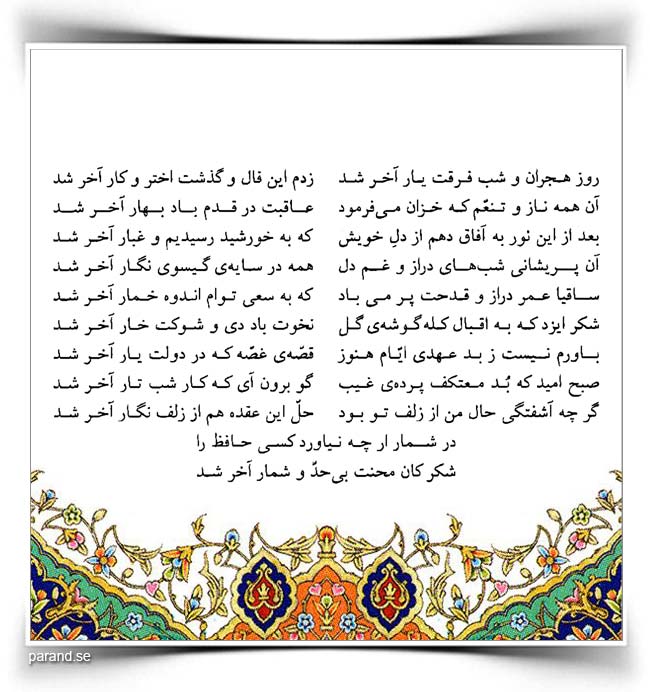 روز هجران و شب فرقت یار آخر شد زدم این فال و گذشت اختر و کار آخر شد
آن همه ناز و تنعّم که خزان می‌فرمود عاقبت در قدم باد بهار آخر شد
بعد از این نور به آفاق دهم از دلِ خویش که به خورشید رسیدیم و غبار آخر شد
آن پریشانی شب‌های دراز و غم دل همه در سایه‌ی گیسوی نگار آخر شد
ساقیا عمر دراز و قدحت پر می باد که به سعی توام اندوه خمار آخر شد
شکر ایزد که به اقبال کله‌گوشه‌ی گل نخوت باد دی و شوکت خار آخر شد
باورم نیست ز بد عهدی ایّام هنوز قصّه‌ی غصّه که در دولت یار آخر شد
صبح امید که بُد معتکف پرده‌ی غیب گو برون آی که کار شب تار آخر شد
گر چه آشفتگی حال من از زلف تو بود حلّ این عقده هم از زلف نگار آخر شد
در شمار ار چه نیاورد کسی حافظ را
شکر کان محنت بی‌حدّ و شمار آخر شد
parand.se